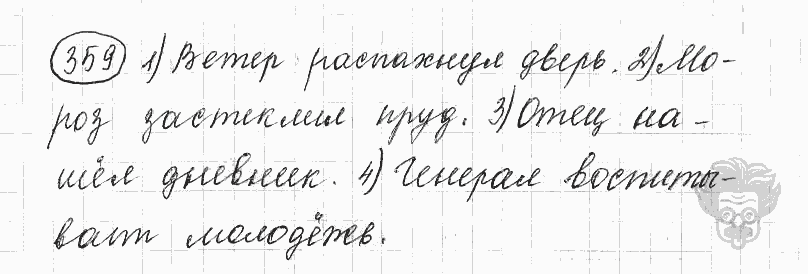 359 1) Ветер распахнул дверь. 2) Мо-
роз застеклил пруд. 3) Отец на-
шёл дневник. 4) Генерал воспиты-
вает молодёжь.